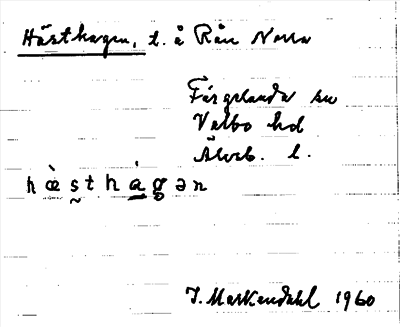 Hästhagen, t. å Rån Norra
Färgelanda sn
Valbo hd
Älvsb. l.
hæ̀sthágən
J. Markendahl 1960